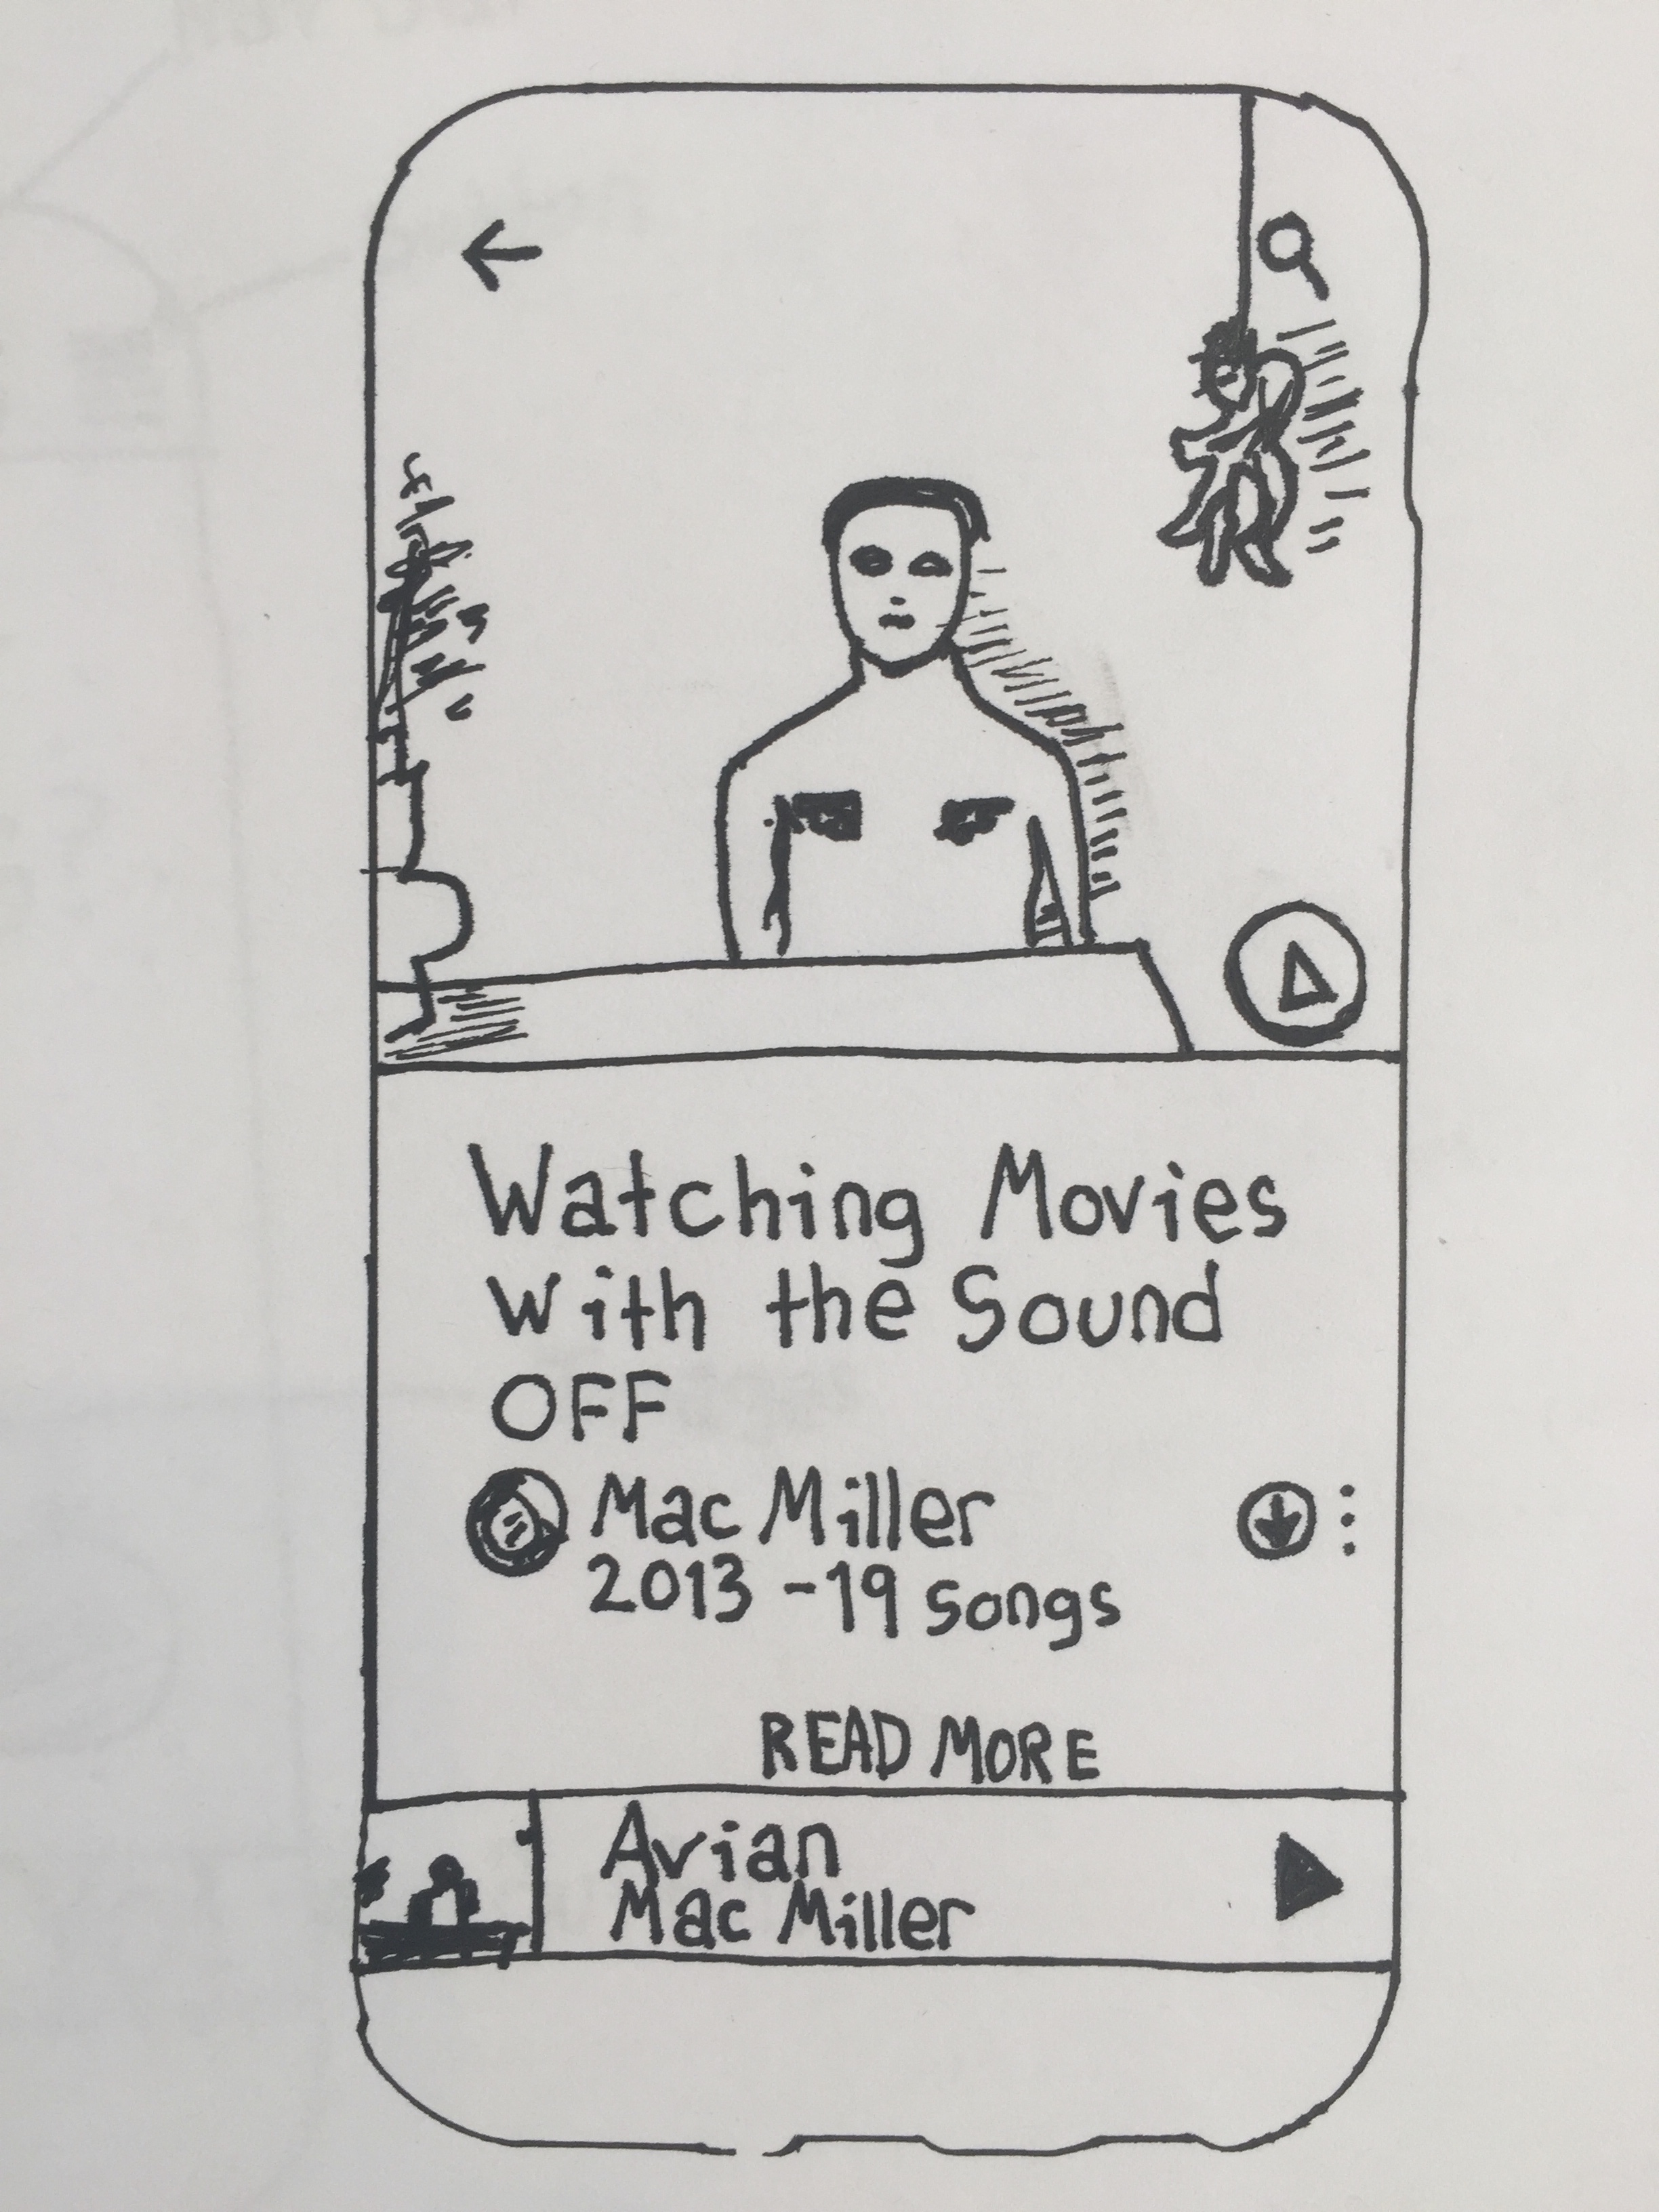 Watching Movies
With the Sound
OFF
Mac Miller
2013 - 19 songs
READ MORE
Avian
Mac Miller